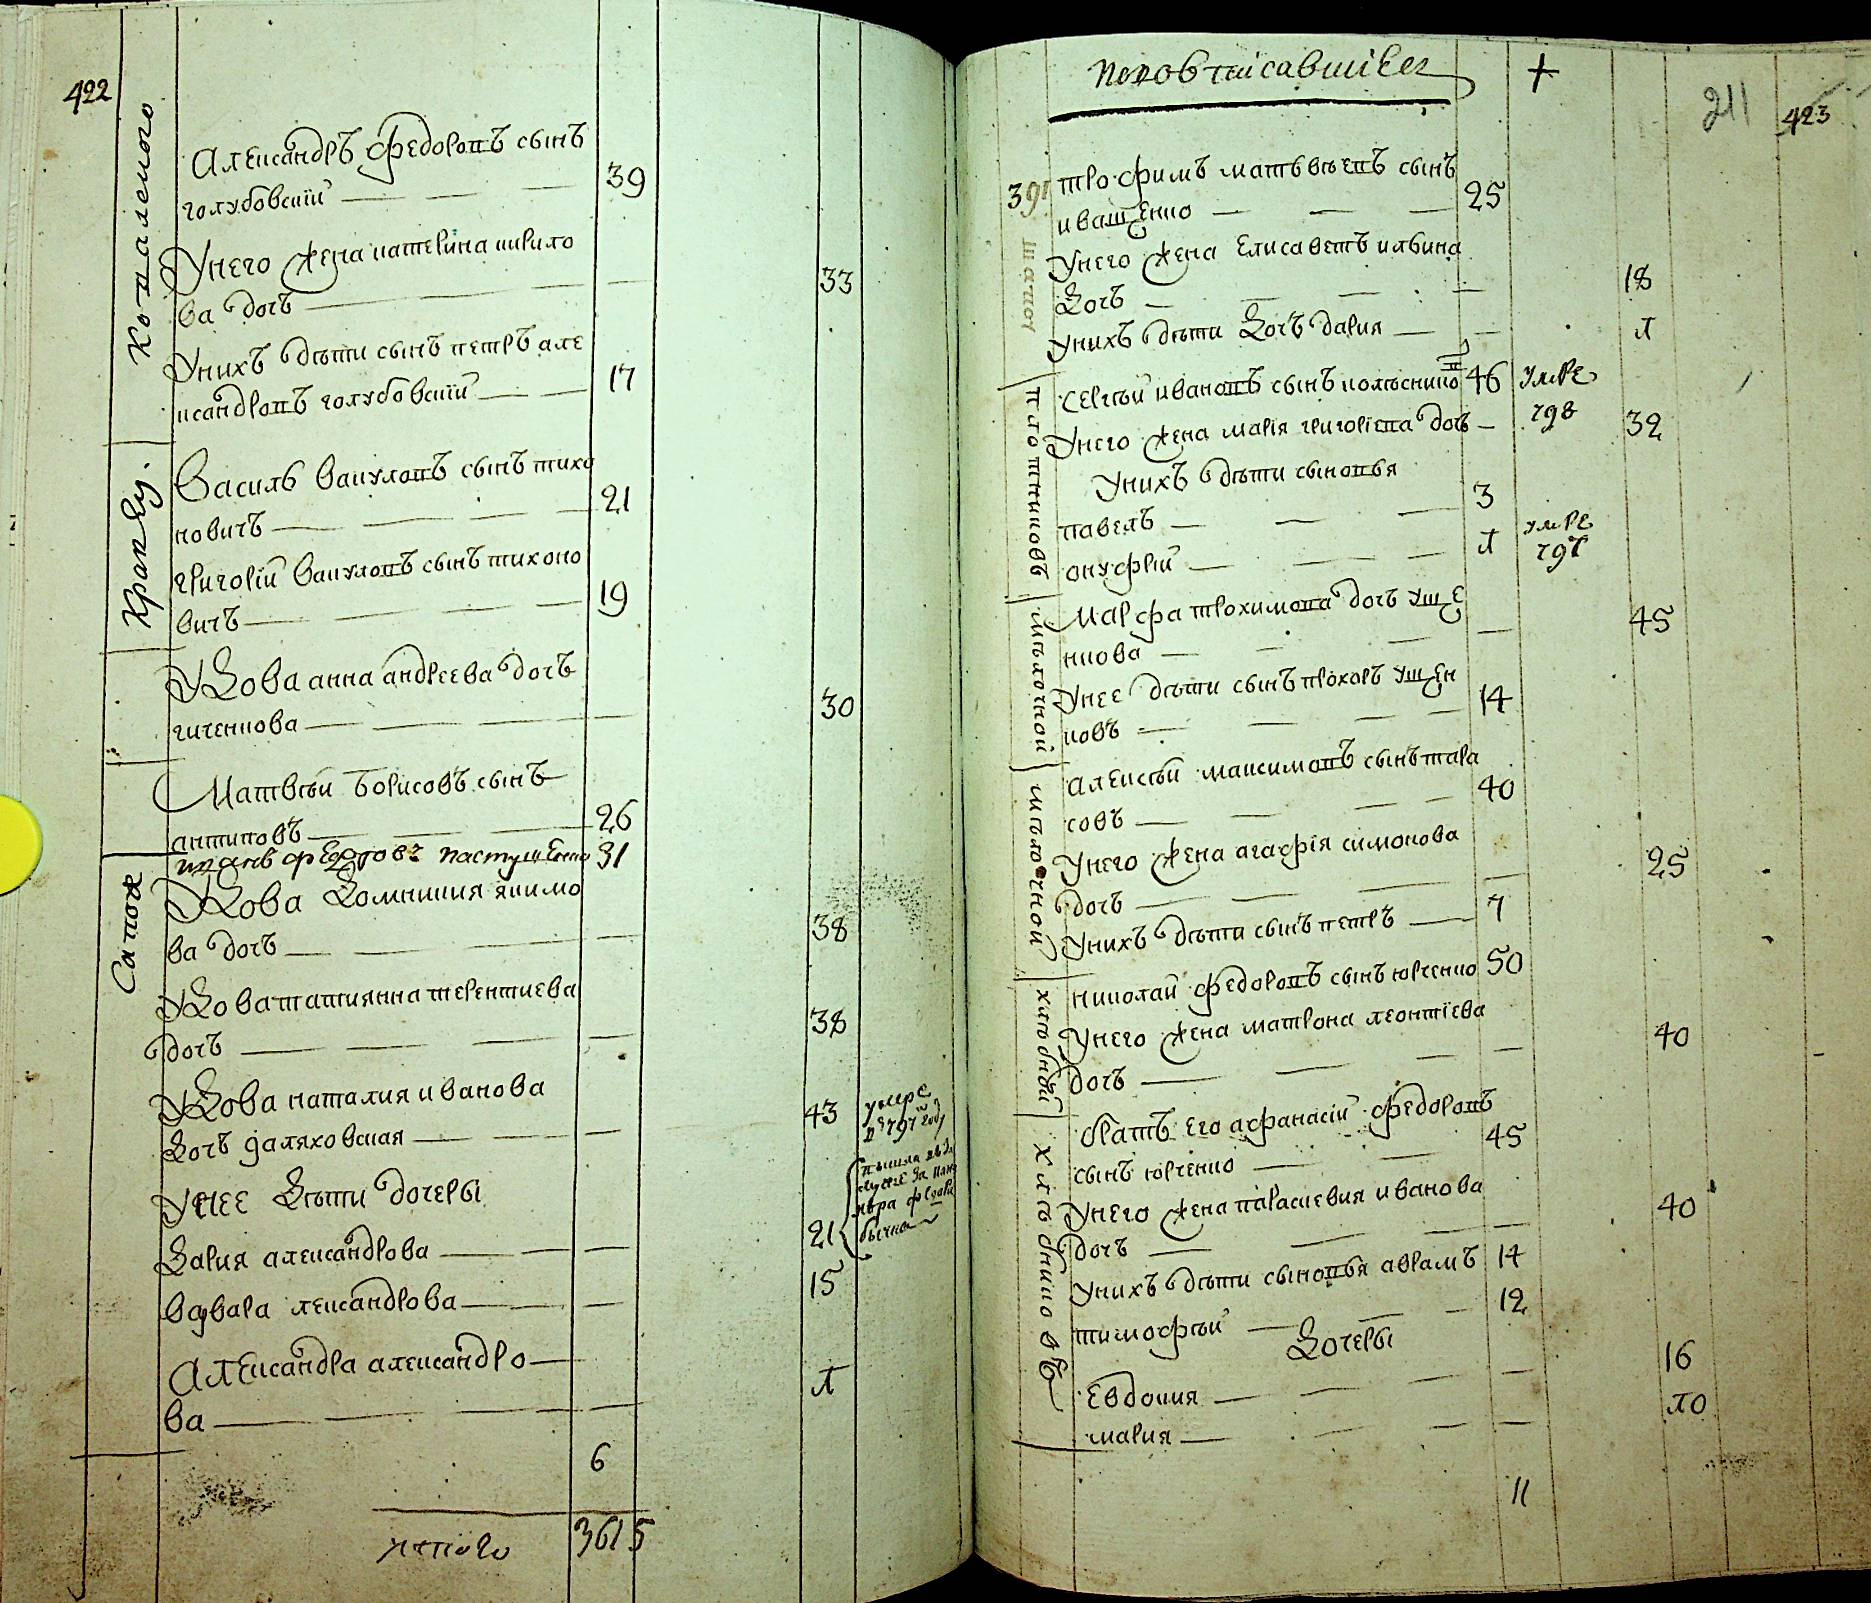 422
Коваленого
Александръ Федоровъ сынъ
голубовскій 39
Унего жена катерина кирило
ва дочь 33
Унихъ дѣти сынъ петръ але
ксандровъ голубовскій 17
Василь Вакуловъ сынъ тихо
новичъ 21
григорій Вакуловъ сынъ тихоно
вичъ 19
Удова анна андреева дочь
гиченкова 30
Матвѣй Борисовъ сынъ
антиповъ 26
иванъ федотовъ пастушенко 31
Сапож
Удова Домникия якимо
ва дочь 38
Удова татиянна терентиева
дочь 38
Удова наталия иванова 43 умре
дочь даляховская
Унее дѣти дочеры
Дария александрова 21
варвара лександрова 15
Александра александро
ва л
6
итого 3615
новописавшіеся + 211 423
391 трофимъ матвѣевъ сынъ
иващенко 25
Унего жена Елисаветъ илвина
дочь 18
Унихъ дѣти дочь дария л
Плотниковъ
сергѣй ивановъ сынъ колѣснико 46 умре
798
Унего жена марія григоріева дочь 32
Унихъ дѣти сыновья
павелъ 3
онуфрій л умре
797
мѣлочной
Марфа трохимова дочь уще
нкова 45
Унее дѣти сынъ прохоръ ущен
ковъ 14
мѣлочной
алексѣй максимовъ сынъ тара
совъ 40
Унего жена агафія симонова
дочь 25
Унихъ дѣти сынъ петръ 7
хлѣбной
николай федоровъ сынъ юрченко 50
Унего жена матрона леонтіева
дочь 40
хлѣбниковъ
братъ его афанасій федоровъ
сынъ юрченко 45
Унего жена параскевия иванова
дочь 40
Унихъ дѣти сыновья аврамъ 14
тимофѣй 12
дочеры
Евдокия 16
мария л0
11